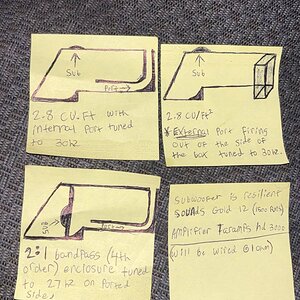 Sub
Port
2.8 CU.Ft with
internal Port tuned
to 30hz
Sub
2.8 CU/ft³
* External Port firing
out of the side of
the box tuned to 30hz.
Sub
2:1 bandpass (4th
order) enclosure tuned
to 27hz on Ported
side
Subwoofer is resilient
sounds Gold 12 (1500 RMS)
Amplifier Taramps hd 3000
(will be wired @ 1ohm)